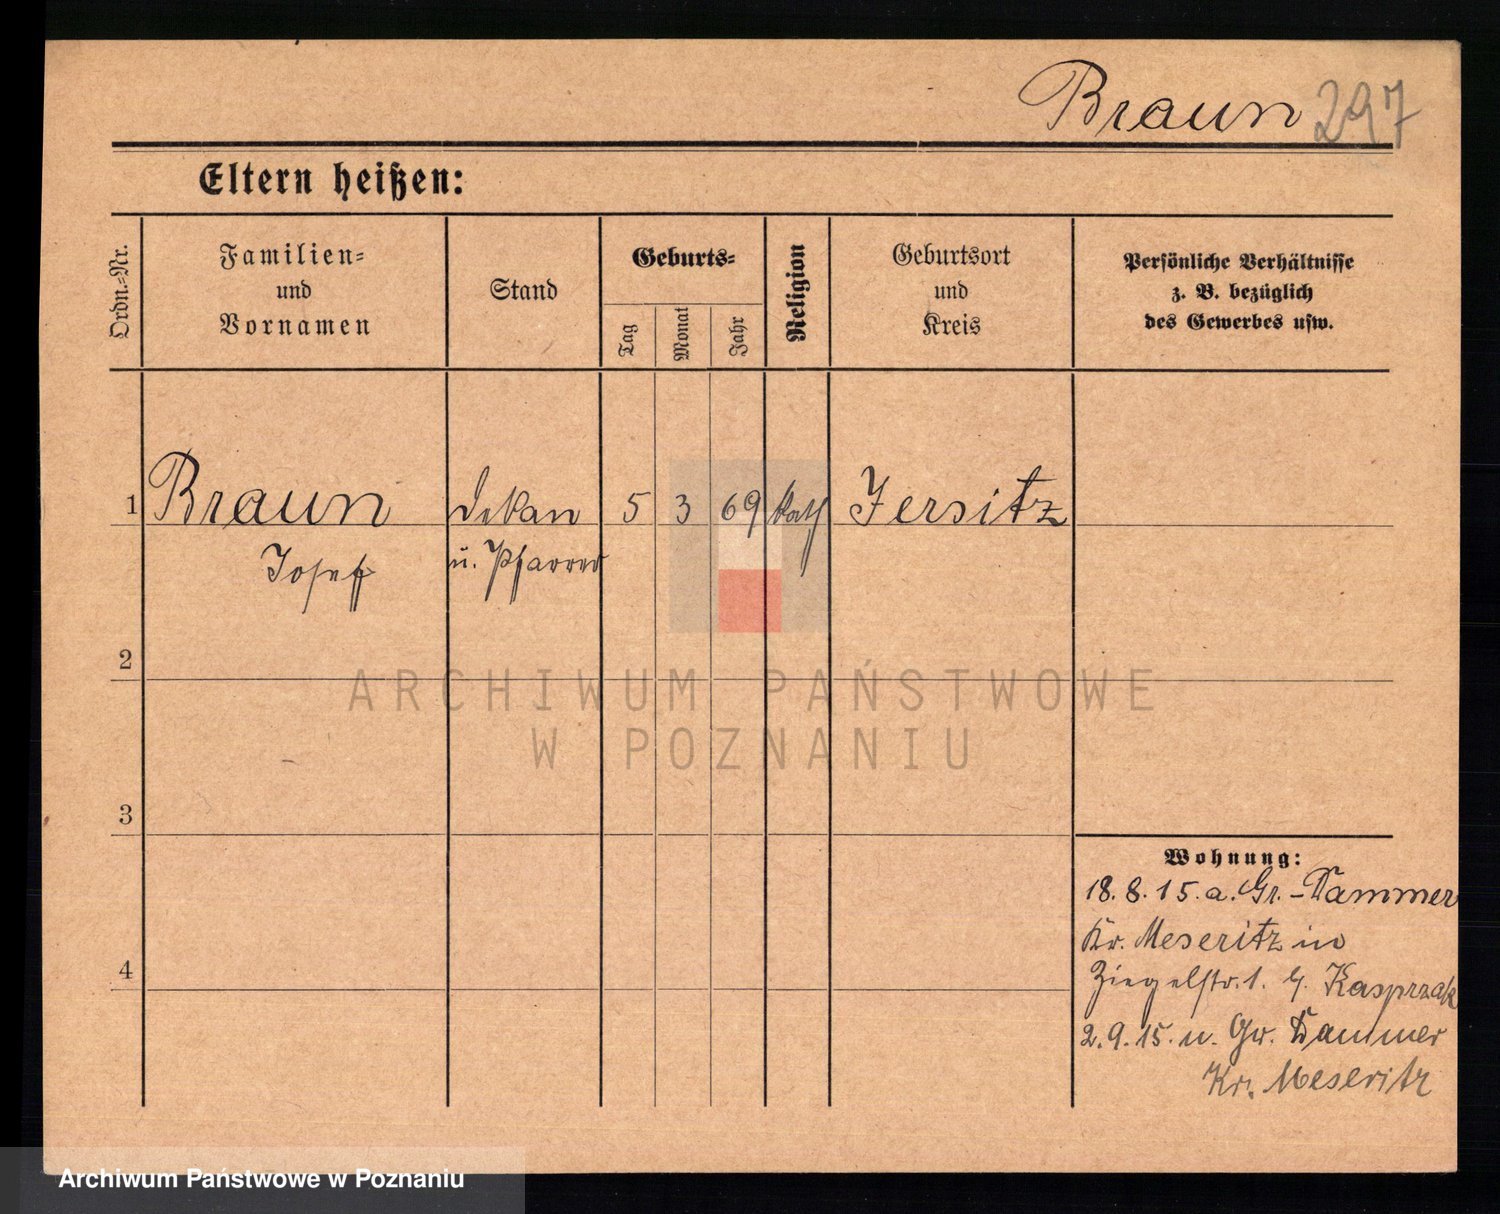 Braun 297
Eltern heißen:
Ordn.-Nr.
Familien-
und
Vornamen
Stand
Geburts-
Tag
Monat
Jahr
Religion
Geburtsort
und
Kreis
Persönliche Verhältnisse
z. B. bezüglich
des Gewerbes usw.
1 Braun Dekan 5 3 69 kath Jersitz
Josef u. Pfarrer
2
ARCHIWUM PAŃSTWOWE
W POZNANIU
3
4
Wohnung:
18. 8. 15. a. Gr.-Dammer
Kr. Meseritz in
Ziegelstr. 1. b. Kasprzak
2. 9. 15. n. Gr. Dammer
Kr. Meseritz
Archiwum Państwowe w Poznaniu